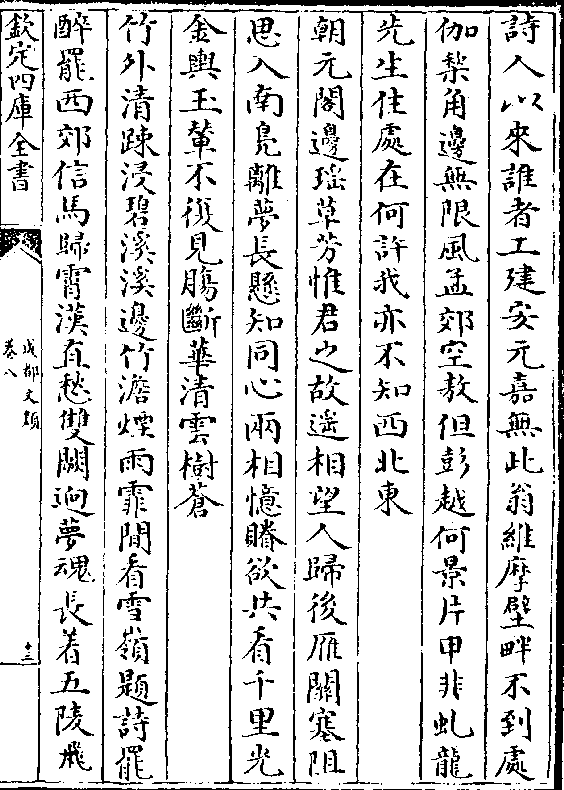 詩人以來誰者工建安元嘉無此翁維摩壁畔不到處
伽棃角邊無限風孟郊空敖但彭越何景片甲非虬龍
先生住處在何許我亦不知西北東
朝元閣邊瑶草芳惟君之故遥相望人歸後雁關塞阻
思入南鳬離夢長懸知同心兩相憶睠欲共看千里光
金輿玉輦不復見腸斷華清雲樹蒼
竹外清踈浸碧溪溪邊竹澹煙雨霏間看雪嶺題詩罷
醉罷西郊信馬歸霄漢直愁雙闕迥夢魂長着五陵飛
欽定四庫全書
成都文類
卷八
十三